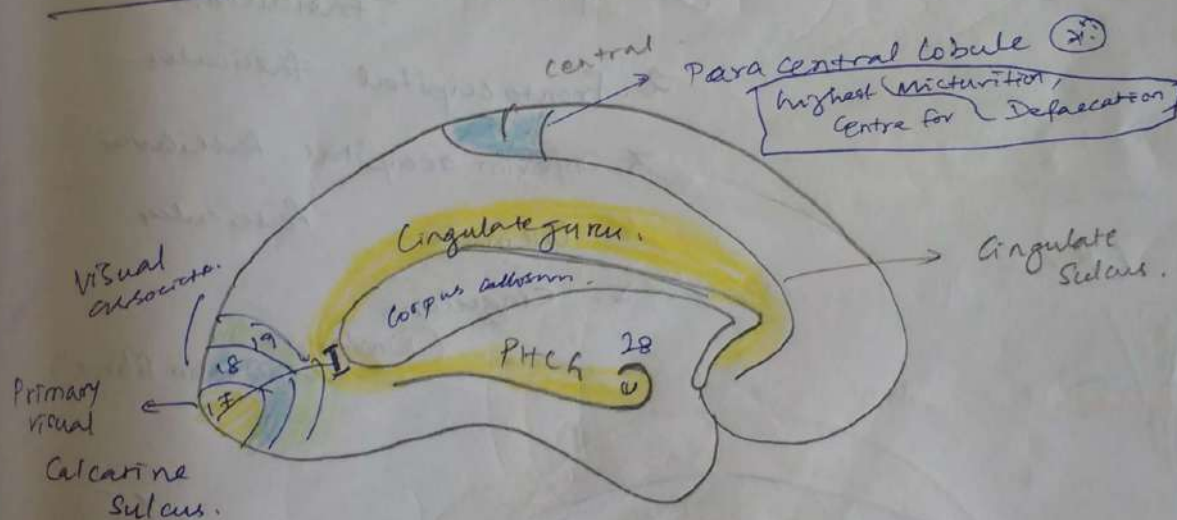 central
Para central lobule
highest Micturition,
Centre for Defaecation
Cingulate gyrus.
Cingulate
Sulcus.
Corpus callosum.
Visual
associate.
19
18
17
I
PHCG
28
e
Primary
visual
Calcarine
Sulcus.